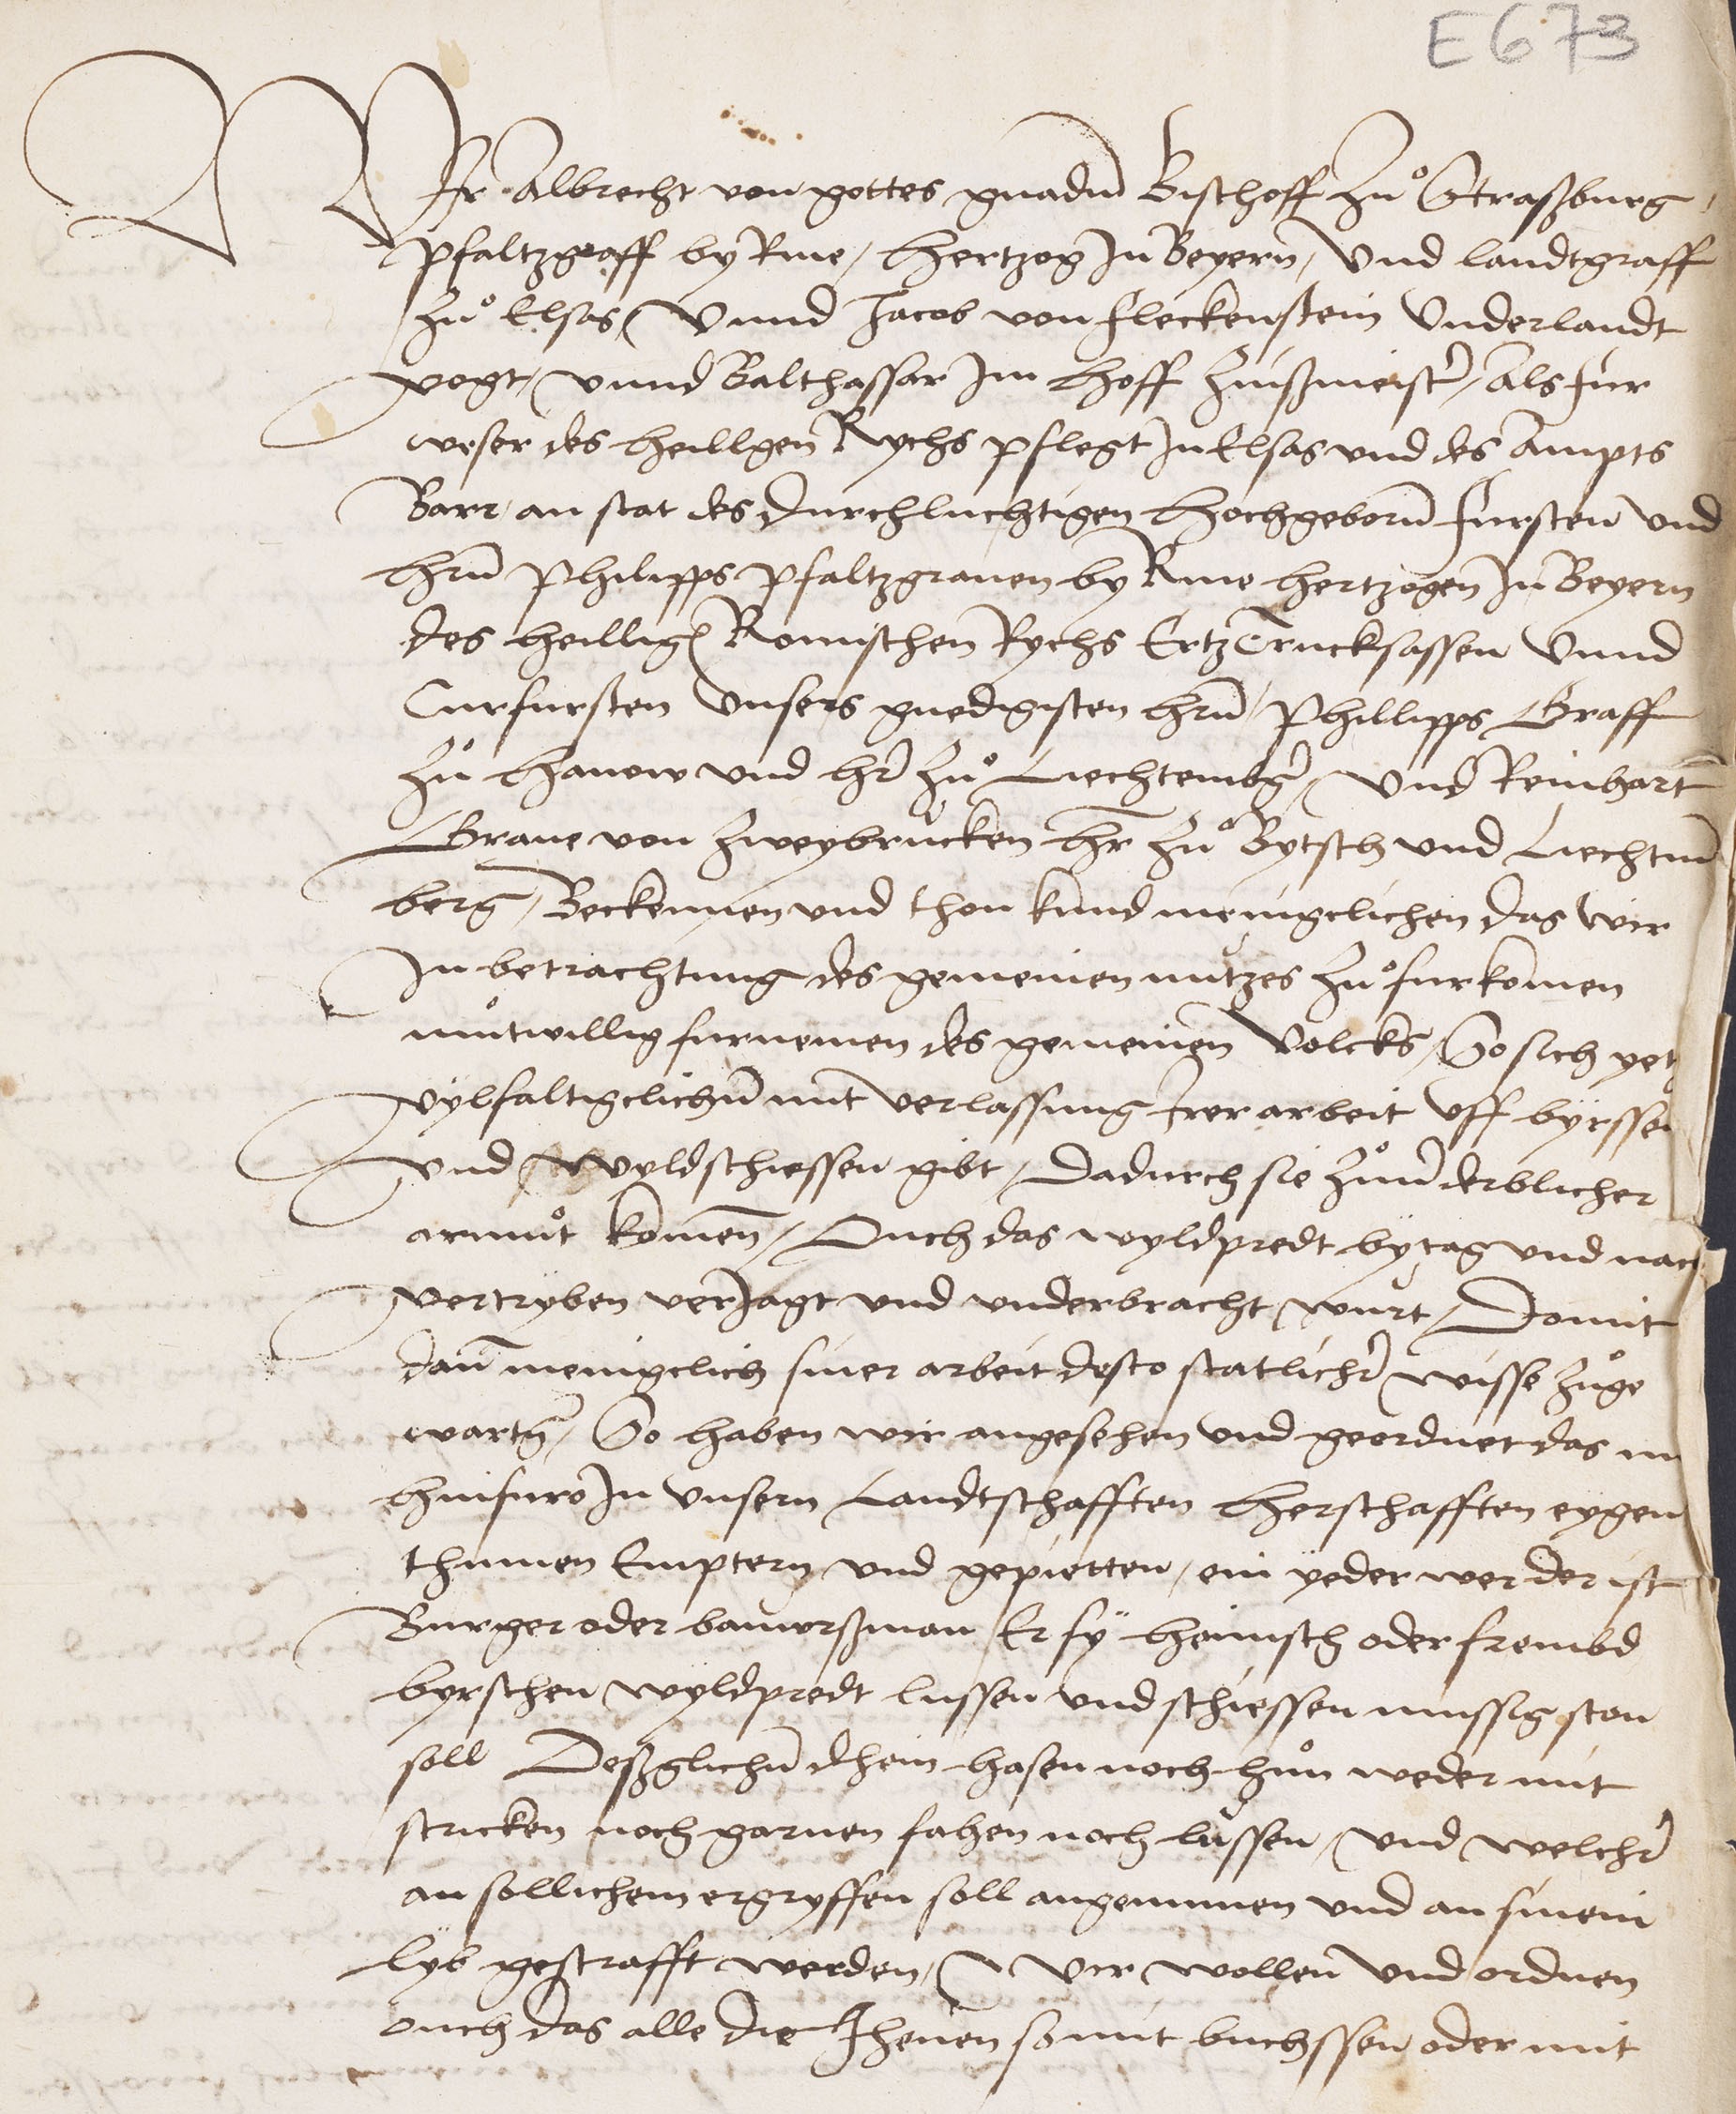 E 673
Wir Albrecht von gottes gnadn̄ Bischoff zů Straßburg /
pfaltzgraff by Rine / Hertzog In Beyern / Vnd landtgraff
zů Elsas / Vnnd Jacob von Fleckenstein Vnderlandt
vogt / vnnd Balthassar Im Hoff Zinßmeister / als fur
weser des heilligen Rychs pflegt In Elsas vnd des ampts
Barr / an stat des durchluchtigen Hochgebornn fursten vnd
Hrn̄ Philipps Pfaltzgrauen by Rine Hertzogen In Beyern
des heillig(e) Romischen Rychs Ertz Trucksassen Vnnd
Curfursten Vnsers gnedigisten hrn̄ / Phillipps Graff
zů Hanow vnd hr̄ zů Liechtemb̄g / Vnd Reinhart
Graue von Zweybrucken Hr̄ zů Bytsch vnd Liechtnn̄
berg / Beckennen vnd thon kund menigclichen das wir
In betrachtung des gemeinen nutzes zů furkomen
můtwillig furnemen des gemeinen Volcks / So sich yetz
vylfaltigclichn̄ mit verlassung irer arbeit vff byrssen
vnd wyldschiessen gibt / Dadurch sie zůu̅derblicher
armůt komen̄ / Ouch das wyldpredt by tag vnd nach
vertryben verJagt vnd vnderbracht wurt / Domit
dan̄ menigclich siner arbeit desto statlichr̄ wisse zůge
wart̄n / So haben wir angesehen vnd geordnet das nu
hinfuro In vnsern Landtschafften Herschafften eygen
thumen Emptern vnd gepietten / ein yeder wer der ist
Burger oder bauwrßman / Er sÿ heimsch oder frembd
byrschen wyldpredt lussen vnd schiessen mussig ston
soll Deßglichn̄ dhein hasen noch hůn weder mit
stricken noch garnen fahen noch lussen / vnd welchr̄
an sollichem ergryffen soll angenumen vnd an sinem
lyb gestrafft werden / Wir wollen vnd ordnen
ouch das alle die Jhenen so mit buchssen oder mit